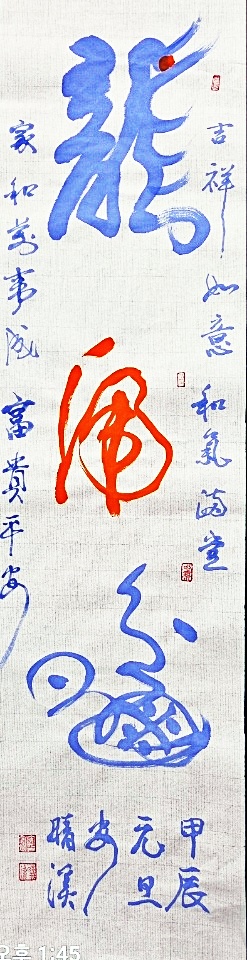 吉祥如意 和氣滿堂
龍
虎
龜
家和萬事成 富貴平安
甲辰
元旦
安
晴
오후 1:45